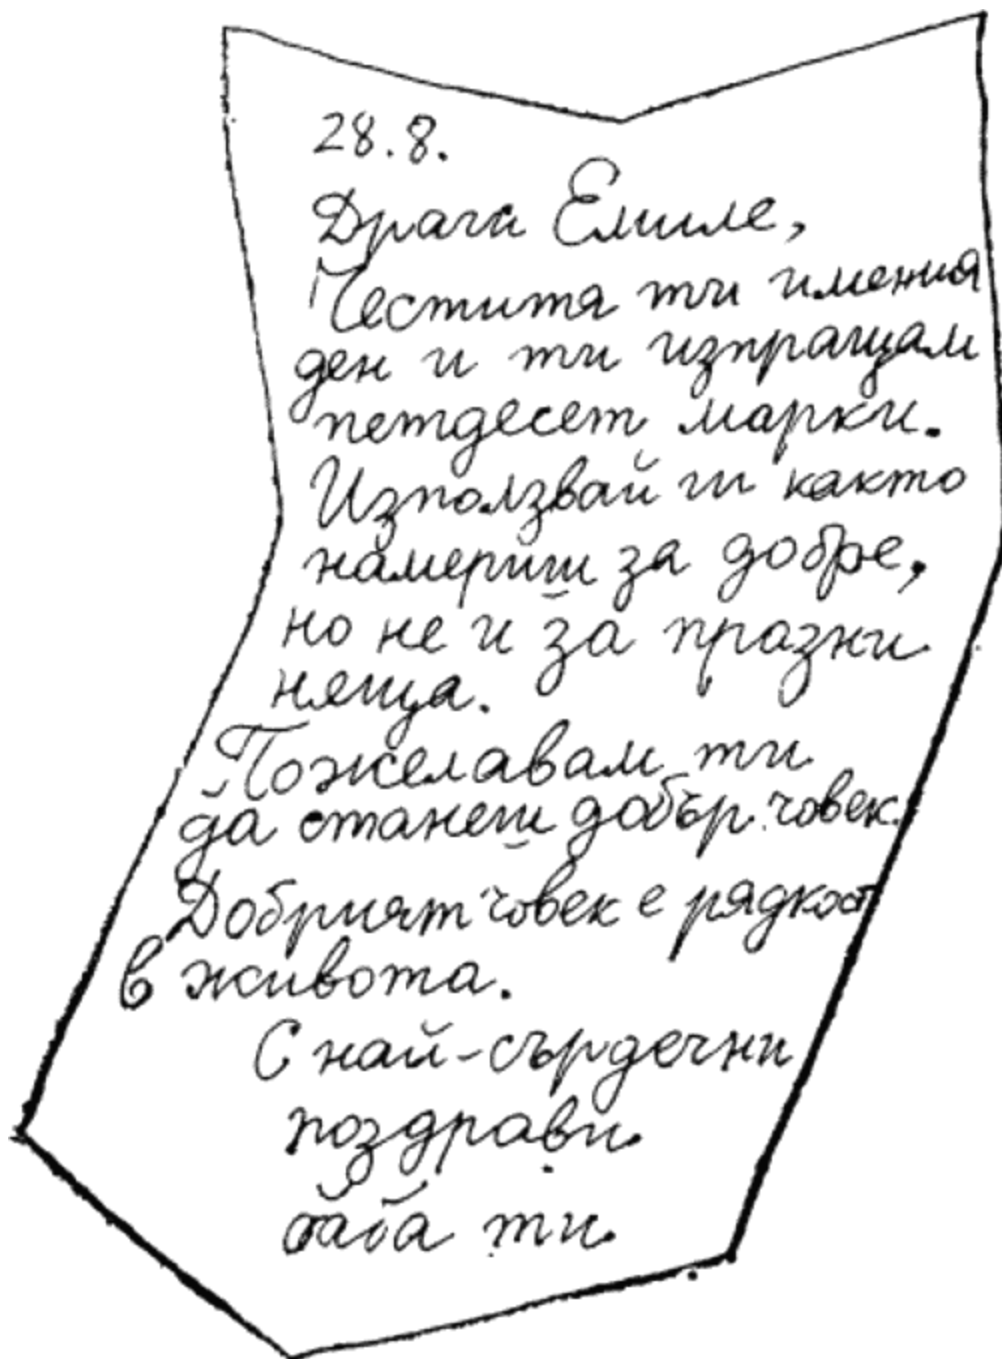 28.8.
Драги Емиле,
Честитя ти имения
ден и ти изпращам
петдесет марки.
Използвай ги както
намериш за добре,
но не и за празни
няща.
Пожелавам ти
да станеш добър човек.
Добрият човек е рядкост
в живота.
С най-сърдечни
поздрави
баба ти.